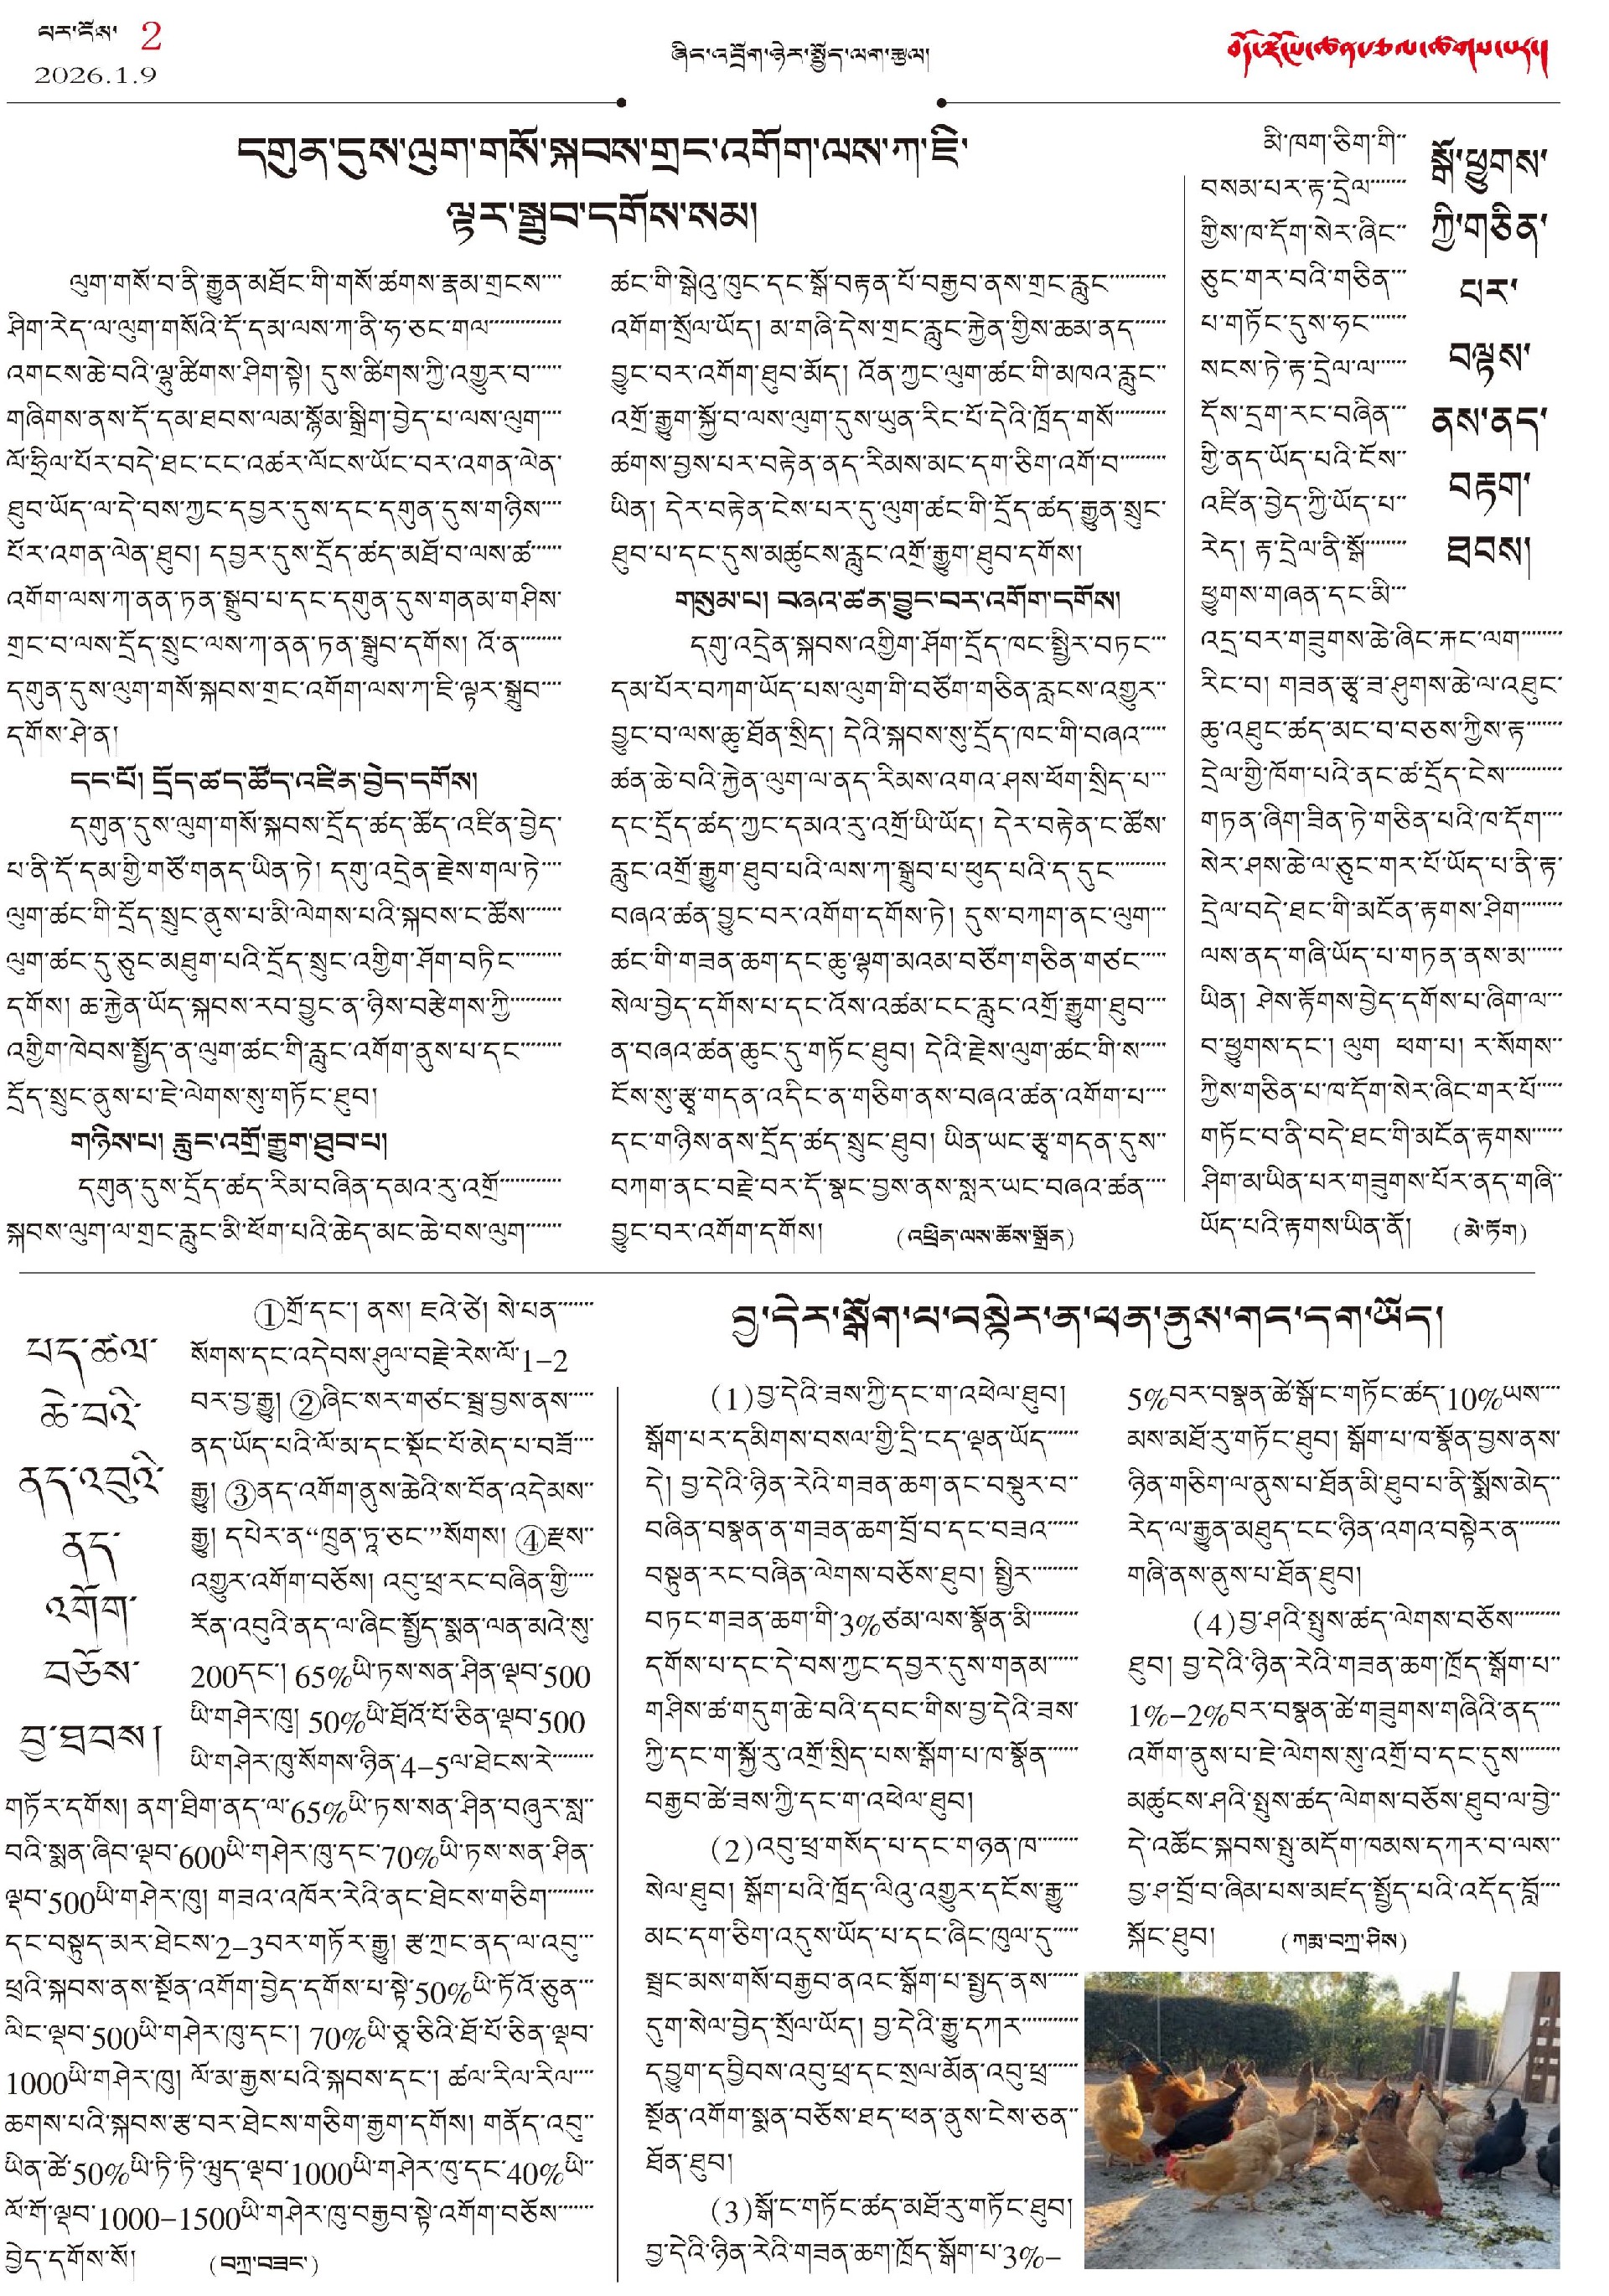 པར་ངོས་ 2
2026.1.9
ཞིང་འབྲོག་ཉེར་སྤྱོད་ལག་རྩལ།
དགུན་དུས་ལུག་གསོ་སྐབས་གྲང་འགོག་ལས་ཀ་ཇི་
ལྟར་སྒྲུབ་དགོས་སམ།
ལུག་གསོ་བ་ནི་རྒྱུན་མཐོང་གི་གསོ་ཚགས་རྣམ་གྲངས
ཤིག་རེད་ལ་ལུག་གསོའི་དོ་དམ་ལས་ཀ་ནི་ཧ་ཅང་གལ
འགངས་ཆེ་བའི་ལྷུ་ཚིགས་ཤིག་སྟེ། དུས་ཚིགས་ཀྱི་འགྱུར་བ
གཞིགས་ནས་དོ་དམ་ཐབས་ལམ་སྙོམ་སྒྲིག་བྱེད་པ་ལས་ལུག
ལོ་ཧྲིལ་པོར་བདེ་ཐང་ངང་འཚར་ལོངས་ཡོང་བར་འགན་ལེན་
ཐུབ་ཡོད་ལ་དེ་བས་ཀྱང་དབྱར་དུས་དང་དགུན་དུས་གཉིས
པོར་འགན་ལེན་ཐུབ། དབྱར་དུས་དྲོད་ཚད་མཐོ་བ་ལས་ཚ
འགོག་ལས་ཀ་ནན་ཏན་སྒྲུབ་པ་དང་དགུན་དུས་གནམ་གཤིས་
གྲང་བ་ལས་དྲོད་སྲུང་ལས་ཀ་ནན་ཏན་སྒྲུབ་དགོས། འོ་ན
དགུན་དུས་ལུག་གསོ་སྐབས་གྲང་འགོག་ལས་ཀ་ཇི་ལྟར་སྒྲུབ
དགོས་ཤེ་ན།
དང་པོ། དྲོད་ཚད་ཚོད་འཛིན་བྱེད་དགོས།
དགུན་དུས་ལུག་གསོ་སྐབས་དྲོད་ཚད་ཚོད་འཛིན་བྱེད་
པ་ནི་དོ་དམ་གྱི་གཙོ་གནད་ཡིན་ཏེ། དགུ་འདྲེན་རྗེས་གལ་ཏེ
ལུག་ཚང་གི་དྲོད་སྲུང་ནུས་པ་མི་ལེགས་པའི་སྐབས་ང་ཚོས
ལུག་ཚང་དུ་ཅུང་མཐུག་པའི་དྲོད་སྲུང་འགྱིག་ཤོག་བཏིང
དགོས། ཆ་རྐྱེན་ཡོད་སྐབས་རབ་བྱུང་ན་ཉིས་བརྩེགས་ཀྱི
འགྱིག་ཁེབས་སྤྱོད་ན་ལུག་ཚང་གི་རླུང་འགོག་ནུས་པ་དང
དྲོད་སྲུང་ནུས་པ་ཇེ་ལེགས་སུ་གཏོང་ཐུབ།
གཉིས་པ། རླུང་འགྲོ་རྒྱུག་ཐུབ་པ།
དགུན་དུས་དྲོད་ཚད་རིམ་བཞིན་དམའ་རུ་འགྲོ
སྐབས་ལུག་ལ་གྲང་རླུང་མི་ཕོག་པའི་ཆེད་མང་ཆེ་བས་ལུག
ཚང་གི་སྒེའུ་ཁུང་དང་སྒོ་བརྟན་པོ་བརྒྱབ་ནས་གྲང་རླུང
འགོག་སྲོལ་ཡོད། མ་གཞི་དེས་གྲང་རླུང་རྐྱེན་གྱིས་ཆམ་ནད
བྱུང་བར་འགོག་ཐུབ་མོད། འོན་ཀྱང་ལུག་ཚང་གི་མཁའ་རླུང
འགྲོ་རྒྱུག་སྐྱོ་བ་ལས་ལུག་དུས་ཡུན་རིང་པོ་དེའི་ཁྲོད་གསོ
ཚགས་བྱས་པར་བརྟེན་ནད་རིམས་མང་དག་ཅིག་འགོ་བ
ཡིན། དེར་བརྟེན་ངེས་པར་དུ་ལུག་ཚང་གི་དྲོད་ཚད་རྒྱུན་སྲུང་
ཐུབ་པ་དང་དུས་མཚུངས་རླུང་འགྲོ་རྒྱུག་ཐུབ་དགོས།
གསུམ་པ། བཞའ་ཚན་བྱུང་བར་འགོག་དགོས།
དགུ་འདྲེན་སྐབས་འགྱིག་ཤོག་དྲོད་ཁང་སྤྱིར་བཏང
དམ་པོར་བཀག་ཡོད་པས་ལུག་གི་བཙོག་གཅིན་རླངས་འགྱུར
བྱུང་བ་ལས་ཆུ་ཐོན་སྲིད། དེའི་སྐབས་སུ་དྲོད་ཁང་གི་བཞའ
ཚན་ཆེ་བའི་རྐྱེན་ལུག་ལ་ནད་རིམས་འགའ་ཤས་ཕོག་སྲིད་པ
དང་དྲོད་ཚད་ཀྱང་དམའ་རུ་འགྲོ་ཡི་ཡོད། དེར་བརྟེན་ང་ཚོས་
རླུང་འགྲོ་རྒྱུག་ཐུབ་པའི་ལས་ཀ་སྒྲུབ་པ་ཕུད་པའི་ད་དུང
བཞའ་ཚན་བྱུང་བར་འགོག་དགོས་ཏེ། དུས་བཀག་ནང་ལུག
ཚང་གི་གཟན་ཆག་དང་ཆུ་ལྷག་མའམ་བཙོག་གཅིན་གཙང
སེལ་བྱེད་དགོས་པ་དང་འོས་འཚམ་ངང་རླུང་འགྲོ་རྒྱུག་ཐུབ
ན་བཞའ་ཚན་ཆུང་དུ་གཏོང་ཐུབ། དེའི་རྗེས་ལུག་ཚང་གི་ས
ངོས་སུ་རྩྭ་གདན་འདིང་ན་གཅིག་ནས་བཞའ་ཚན་འགོག་པ
དང་གཉིས་ནས་དྲོད་ཚད་སྲུང་ཐུབ། ཡིན་ཡང་རྩྭ་གདན་དུས
བཀག་ནང་བརྗེ་བར་དོ་སྣང་བྱས་ནས་སླར་ཡང་བཞའ་ཚན
བྱུང་བར་འགོག་དགོས། (འཕྲིན་ལས་ཆོས་སྒྲོན)
སྒོ་ཕྱུགས་
ཀྱི་གཅིན་
པར་
བལྟས་
ནས་ནད་
བརྟག་
ཐབས།
མི་ཁག་ཅིག་གི
བསམ་པར་རྟ་དྲེལ
གྱིས་ཁ་དོག་སེར་ཞིང
ཅུང་གར་བའི་གཅིན
པ་གཏོང་དུས་ཧང
སངས་ཏེ་རྟ་དྲེལ་ལ
དོས་དྲག་རང་བཞིན
གྱི་ནད་ཡོད་པའི་ངོས
འཛིན་བྱེད་ཀྱི་ཡོད་པ
རེད། རྟ་དྲེལ་ནི་སྒོ
ཕྱུགས་གཞན་དང་མི
འདྲ་བར་གཟུགས་ཆེ་ཞིང་རྐང་ལག
རིང་བ། གཟན་རྩྭ་ཟ་ཤུགས་ཆེ་ལ་འཐུང་
ཆུ་འཐུང་ཚད་མང་བ་བཅས་ཀྱིས་རྟ
དྲེལ་གྱི་ཁོག་པའི་ནང་ཚ་དྲོད་ངེས
གཏན་ཞིག་ཟིན་ཏེ་གཅིན་པའི་ཁ་དོག
སེར་ཤས་ཆེ་ལ་ཅུང་གར་པོ་ཡོད་པ་ནི་རྟ་
དྲེལ་བདེ་ཐང་གི་མངོན་རྟགས་ཤིག
ལས་ནད་གཞི་ཡོད་པ་གཏན་ནས་མ
ཡིན། ཤེས་རྟོགས་བྱེད་དགོས་པ་ཞིག་ལ
བ་ཕྱུགས་དང་། ལུག ཕག་པ། ར་སོགས
ཀྱིས་གཅིན་པ་ཁ་དོག་སེར་ཞིང་གར་པོ
གཏོང་བ་ནི་བདེ་ཐང་གི་མངོན་རྟགས
ཤིག་མ་ཡིན་པར་གཟུགས་པོར་ནད་གཞི
ཡོད་པའི་རྟགས་ཡིན་ནོ། (མེ་ཏོག)
པད་ཚལ་
ཆེ་བའི་
ནད་འབུའི་
ནད་
འགོག་
བཅོས་
བྱ་ཐབས།
①གྲོ་དང་། ནས། ཇའེ་ཙེ། སེ་པན
སོགས་དང་འདེབས་ཤུལ་བརྗེ་རེས་ལོ་1-2
བར་བྱ་རྒྱུ། ②ཞིང་སར་གཙང་སྦྲ་བྱས་ནས
ནད་ཡོད་པའི་ལོ་མ་དང་སྡོང་པོ་མེད་པ་བཟོ
རྒྱུ། ③ནད་འགོག་ནུས་ཆེའི་ས་བོན་འདེམས
རྒྱུ། དཔེར་ན“ཁྲུན་ཧྲ་ཅང་”སོགས། ④རྫས
འགྱུར་འགོག་བཅོས། འབུ་ཕྲ་རང་བཞིན་གྱི
རོན་འབུའི་ནད་ལ་ཞིང་སྤྱོད་སྨན་ལན་མའེ་སུ་
200དང་། 65%ཡི་ཏས་སན་ཤིན་ལྡབ་500
ཡི་གཤེར་ཁུ། 50%ཡི་ཐོའོ་པོ་ཅིན་ལྡབ་500
ཡི་གཤེར་ཁུ་སོགས་ཉིན་4-5ལ་ཐེངས་རེ
གཏོར་དགོས། ནག་ཐིག་ནད་ལ་65%ཡི་ཏས་སན་ཤིན་བཞུར་སླ
བའི་སྨན་ཞིབ་ལྡབ་600ཡི་གཤེར་ཁུ་དང་70%ཡི་ཏས་སན་ཤིན་
ལྡབ་500ཡི་གཤེར་ཁུ། གཟའ་འཁོར་རེའི་ནང་ཐེངས་གཅིག
དང་བསྟུད་མར་ཐེངས་2-3བར་གཏོར་རྒྱུ། རྩ་ཀྲང་ནད་ལ་འབུ
ཕྲའི་སྐབས་ནས་སྔོན་འགོག་བྱེད་དགོས་པ་སྟེ་50%ཡི་ཏོའོ་ཅུན
ལིང་ལྡབ་500ཡི་གཤེར་ཁུ་དང་། 70%ཡི་ཅཱ་ཅིའི་ཐོ་པོ་ཅིན་ལྡབ་
1000ཡི་གཤེར་ཁུ། ལོ་མ་རྒྱས་པའི་སྐབས་དང་། ཚལ་རིལ་རིལ
ཆགས་པའི་སྐབས་རྩ་བར་ཐེངས་གཅིག་རྒྱག་དགོས། གནོད་འབུ
ཡིན་ཚེ་50%ཡི་ཏི་ཏི་ཝུད་ལྡབ་1000ཡི་གཤེར་ཁུ་དང་40%ཡི
ལོ་གོ་ལྡབ་1000-1500ཡི་གཤེར་ཁུ་བརྒྱབ་སྟེ་འགོག་བཅོས
བྱེད་དགོས་སོ། (བཀྲ་བཟང་)
བྱ་དེར་སྒོག་པ་བསྟེར་ན་ཕན་ནུས་གང་དག་ཡོད།
(1)བྱ་དེའི་ཟས་ཀྱི་དང་ག་འཕེལ་ཐུབ།
སྒོག་པར་དམིགས་བསལ་གྱི་དྲི་ངད་ལྡན་ཡོད
དེ། བྱ་དེའི་ཉིན་རེའི་གཟན་ཆག་ནང་བསྡུར་བ
བཞིན་བསྣན་ན་གཟན་ཆག་བྲོ་བ་དང་བཟའ
བསྟུན་རང་བཞིན་ལེགས་བཅོས་ཐུབ། སྤྱིར
བཏང་གཟན་ཆག་གི་3%ཙམ་ལས་སྣོན་མི
དགོས་པ་དང་དེ་བས་ཀྱང་དབྱར་དུས་གནམ
གཤིས་ཚ་གདུག་ཆེ་བའི་དབང་གིས་བྱ་དེའི་ཟས་
ཀྱི་དང་ག་སྐྱོ་རུ་འགྲོ་སྲིད་པས་སྒོག་པ་ཁ་སྣོན
བརྒྱབ་ཚེ་ཟས་ཀྱི་དང་ག་འཕེལ་ཐུབ།
(2)འབུ་ཕྲ་གསོད་པ་དང་གཉན་ཁ
སེལ་ཐུབ། སྒོག་པའི་ཁྲོད་ལིའུ་འགྱུར་དངོས་རྒྱུ
མང་དག་ཅིག་འདུས་ཡོད་པ་དང་ཞིང་ཁུལ་དུ
སྦྲང་མས་གསོ་བརྒྱབ་ནའང་སྒོག་པ་སྤྱད་ནས
དུག་སེལ་བྱེད་སྲོལ་ཡོད། བྱ་དེའི་རྒྱུ་དཀར
དབྱུག་དབྱིབས་འབུ་ཕྲ་དང་སྲལ་མོན་འབུ་ཕྲ
སྔོན་འགོག་སྨན་བཅོས་ཐད་ཕན་ནུས་ངེས་ཅན
ཐོན་ཐུབ།
(3)སྒོ་ང་གཏོང་ཚད་མཐོ་རུ་གཏོང་ཐུབ།
བྱ་དེའི་ཉིན་རེའི་གཟན་ཆག་ཁྲོད་སྒོག་པ་3%-
5%བར་བསྣན་ཚེ་སྒོ་ང་གཏོང་ཚད་10%ཡས
མས་མཐོ་རུ་གཏོང་ཐུབ། སྒོག་པ་ཁ་སྣོན་བྱས་ནས་
ཉིན་གཅིག་ལ་ནུས་པ་ཐོན་མི་ཐུབ་པ་ནི་སྨོས་མེད
རེད་ལ་རྒྱུན་མཐུད་ངང་ཉིན་འགའ་བསྟེར་ན
གཞི་ནས་ནུས་པ་ཐོན་ཐུབ།
(4)བྱ་ཤའི་སྤུས་ཚད་ལེགས་བཅོས
ཐུབ། བྱ་དེའི་ཉིན་རེའི་གཟན་ཆག་ཁྲོད་སྒོག་པ
1%-2%བར་བསྣན་ཚེ་གཟུགས་གཞིའི་ནད
འགོག་ནུས་པ་ཇེ་ལེགས་སུ་འགྲོ་བ་དང་དུས
མཚུངས་ཤའི་སྤུས་ཚད་ལེགས་བཅོས་ཐུབ་ལ་བྱེ
དེ་འཚོང་སྐབས་སྤུ་མདོག་ཁམས་དཀར་བ་ལས
བྱ་ཤ་བྲོ་བ་ཞིམ་པས་མཛད་སྤྱོད་པའི་འདོད་བློ
སྐོང་ཐུབ། (ཀརྨ་བཀྲ་ཤིས)